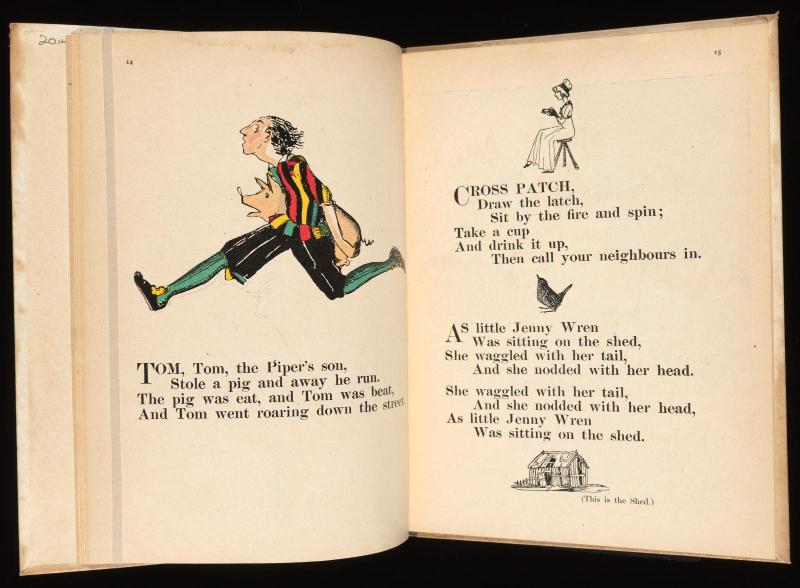 14
TOM, Tom, the Piper's son,
Stole a pig and away he run.
The pig was eat, and Tom was beat,
And Tom went roaring down the street.
15
CROSS PATCH,
Draw the latch,
Sit by the fire and spin;
Take a cup
And drink it up,
Then call your neighbours in.
AS little Jenny Wren
Was sitting on the shed,
She waggled with her tail,
And she nodded with her head.
She waggled with her tail,
And she nodded with her head,
As little Jenny Wren
Was sitting on the shed.
(This is the Shed.)